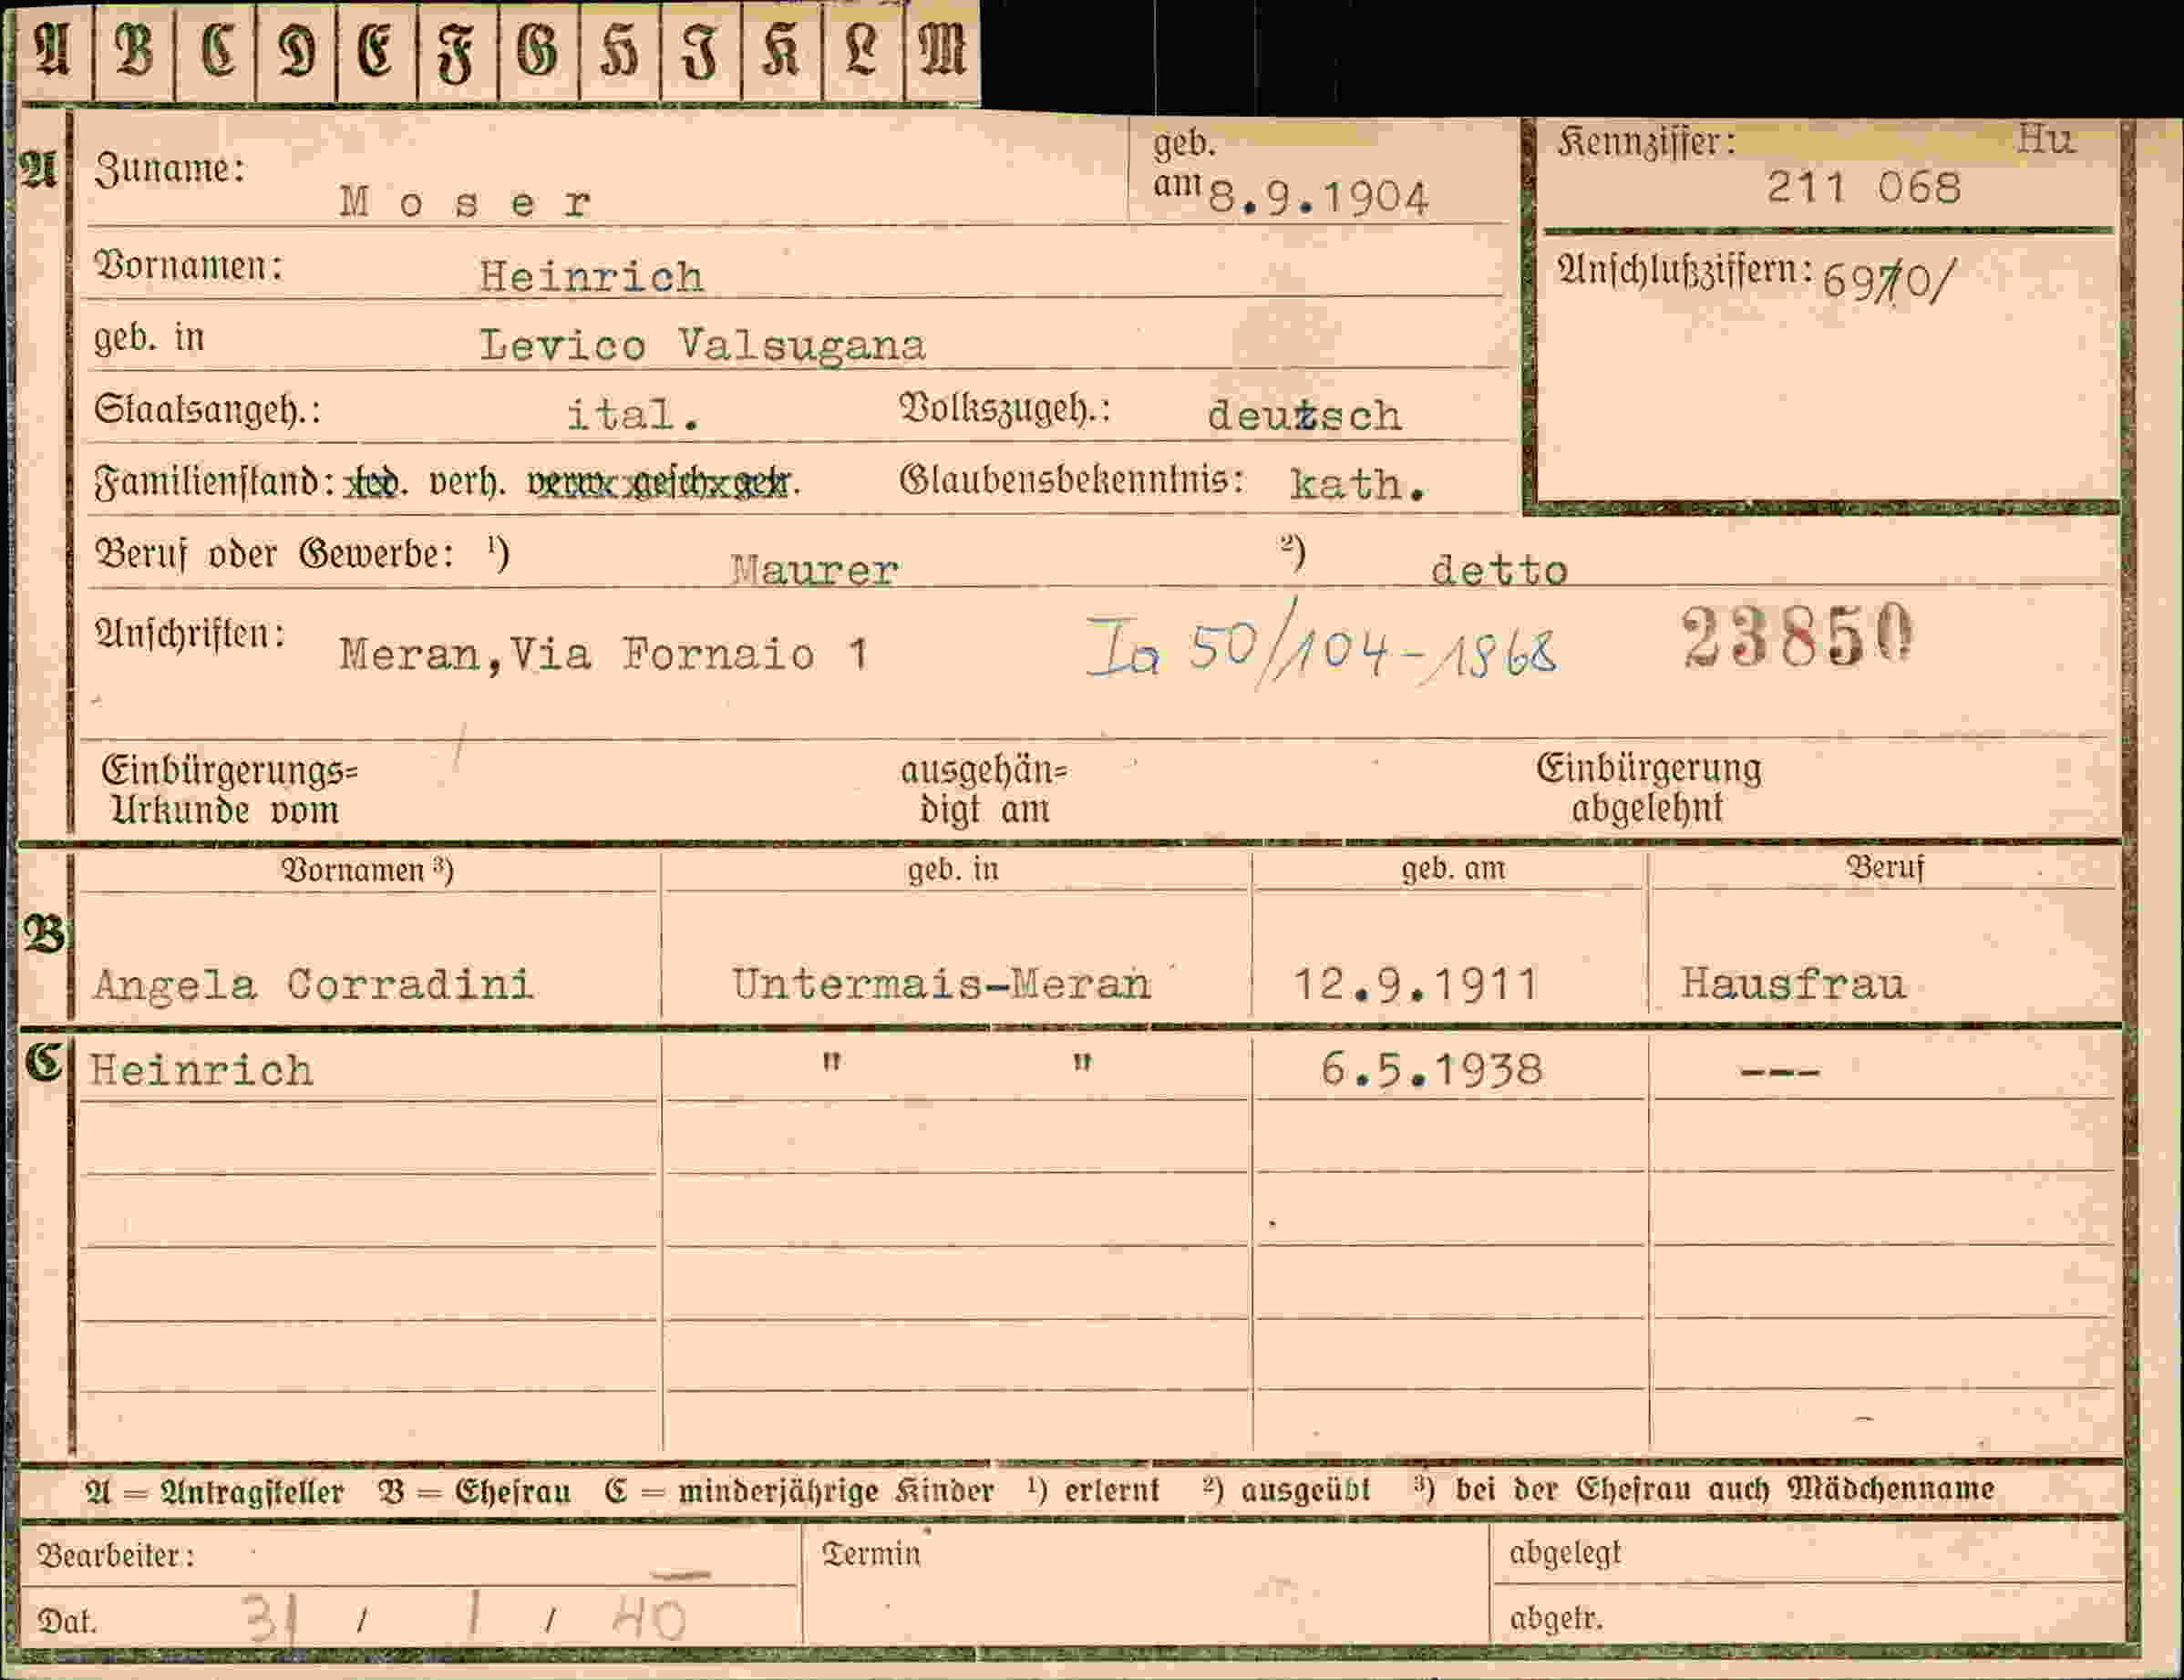 A B C D E F G H I K L M
A Zuname: Moser geb. am 8.9.1904 Kennziffer: Hu 211 068
Vornamen: Heinrich Anschlußziffern: 6970/
geb. in Levico Valsugana
Staatsangeh.: ital. Volkszugeh.: deutsch
Familienstand: led. verh. verw. gesch. getr. Glaubensbekenntnis: kath.
Beruf oder Gewerbe: ¹) Maurer ²) detto
Anschriften: Meran,Via Fornaio 1 Ia 50/104-1968 23850
Einbürgerungs= ausgehän= Einbürgerung
Urkunde vom digt am abgelehnt
Vornamen ³) geb. in geb. am Beruf
B Angela Corradini Untermais-Meran 12.9.1911 Hausfrau
C Heinrich " " 6.5.1938 ---
A = Antragsteller B = Ehefrau C = minderjährige Kinder ¹) erlernt ²) ausgeübt ³) bei der Ehefrau auch Mädchenname
Bearbeiter: Termin abgelegt
Dat. 31 / 1 / 40 abgetr.